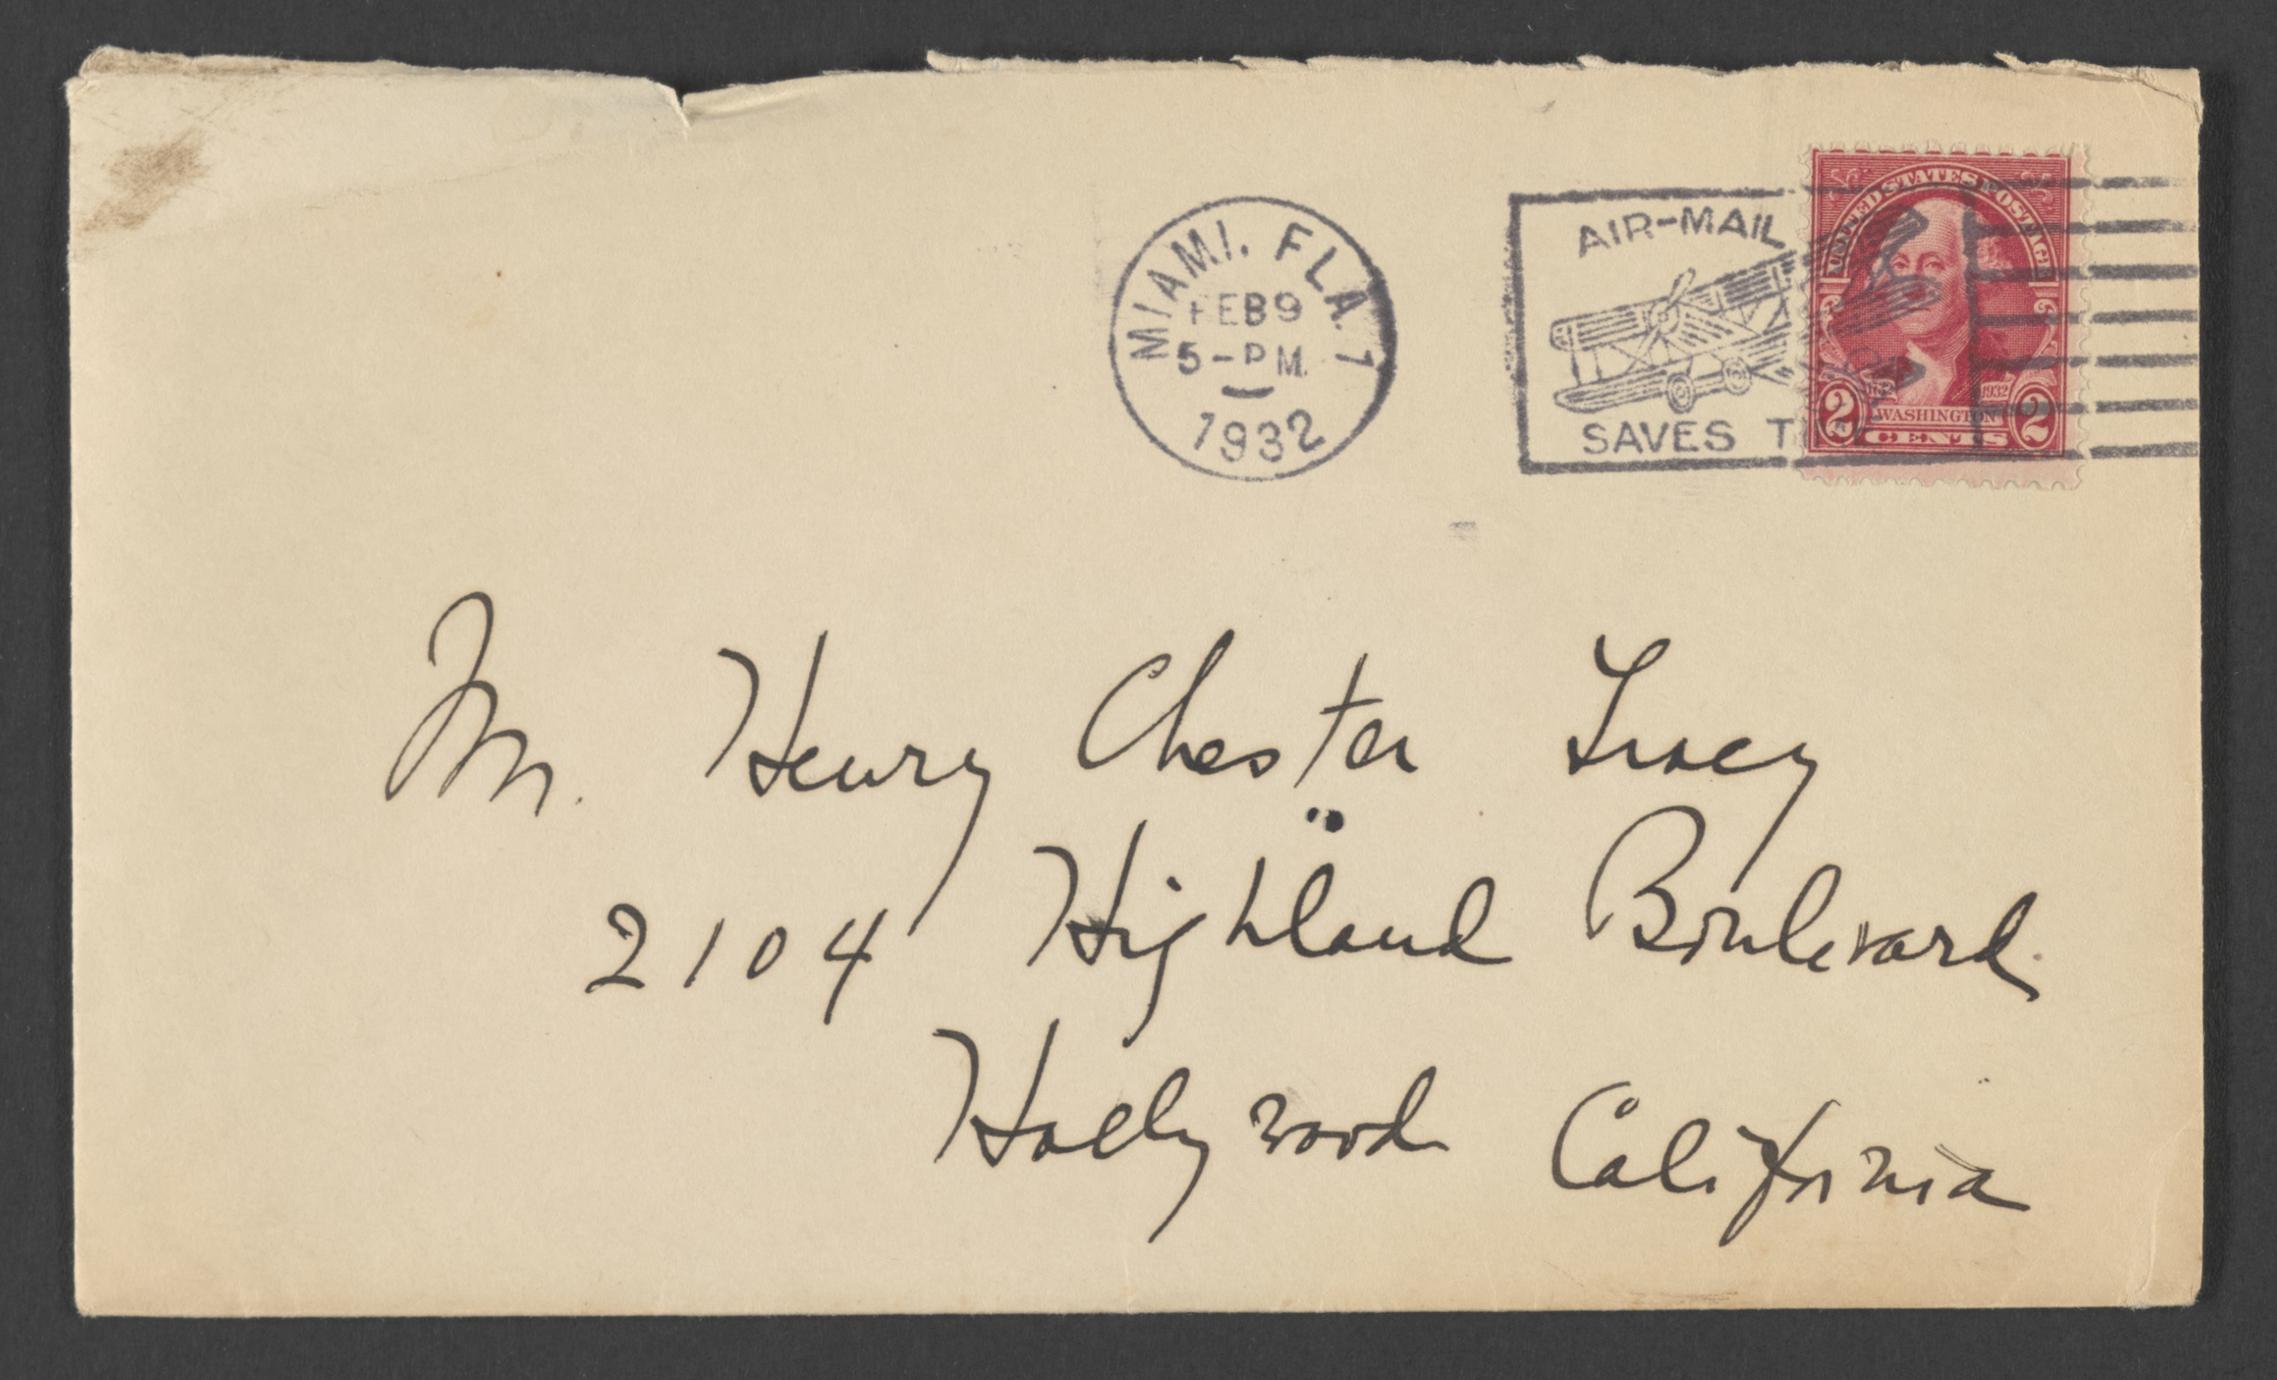 MIAMI, FLA. 1
FEB 9
5-PM
1932
AIR-MAIL
SAVES
UNITED STATES POSTAGE
1732 1932
WASHINGTON
2 CENTS 2
Mr. Henry Chester Tracy
2104 Highland Boulevard.
Hollywood California